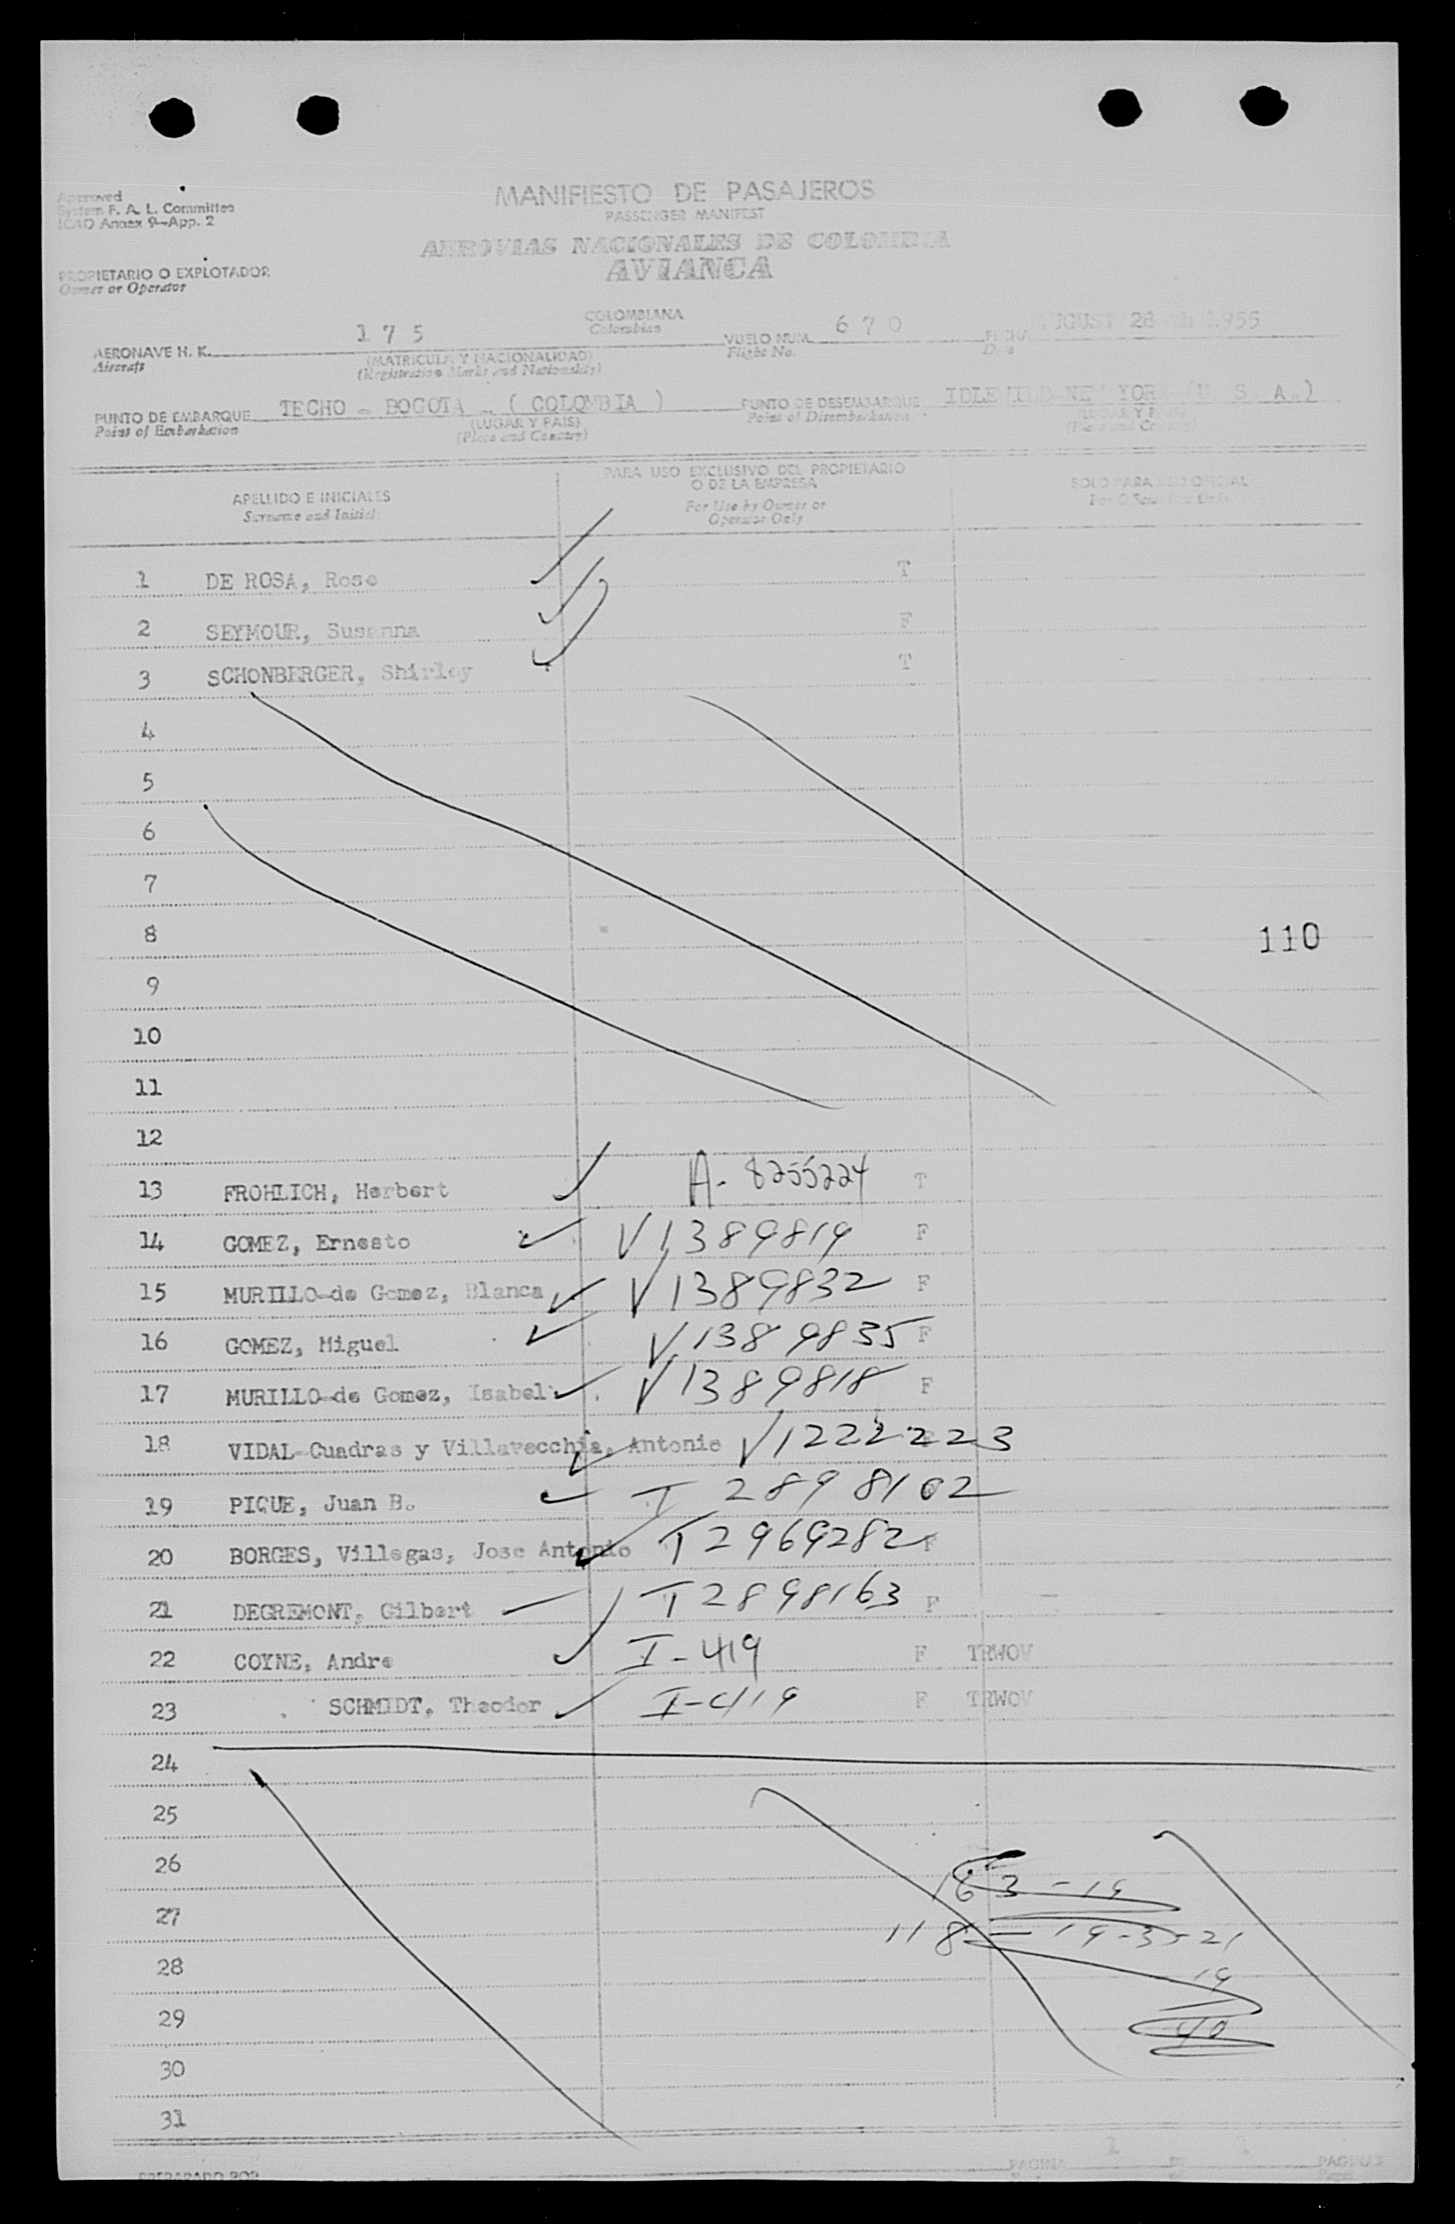 Approved
System F. A. L. Committee
ICAO Annex 9-App. 2
MANIFIESTO DE PASAJEROS
PASSENGER MANIFEST
AEROVIAS NACIONALES DE COLOMBIA
AVIANCA
PROPIETARIO O EXPLOTADOR
Owner or Operator
AERONAVE H. K. 175 COLOMBIANA VUELO NUM. 670 FECHA AUGUST 28 1955
Aircraft (MATRICULA Y NACIONALIDAD) Colombian Flight No. Date
(Registration Marks and Nationality)
PUNTO DE EMBARQUE TECHO - BOGOTA - ( COLOMBIA ) PUNTO DE DESEMBARQUE IDLEWILD-NEW YORK (U. S. A.)
Point of Embarkation (LUGAR Y PAIS) Point of Disembarkation (LUGAR Y PAIS)
(Place and Country) (Place and Country)
APELLIDO E INICIALES
Surname and Initials
PARA USO EXCLUSIVO DEL PROPIETARIO
O DE LA EMPRESA
For Use by Owner or
Operator Only
SOLO PARA USO OFICIAL
1 DE ROSA, Rose T
2 SEYMOUR, Susanna F
3 SCHONBERGER, Shirley T
4
5
6
7
8 110
9
10
11
12
13 FROHLICH, Herbert A-8255224 T
14 GOMEZ, Ernesto V1389819 F
15 MURILLO-de Gomez, Blanca V1389832 F
16 GOMEZ, Miguel V1389835 F
17 MURILLO-de Gomez, Isabel V1389818 F
18 VIDAL-Cuadras y Villavecchia, Antonio V1222223
19 PIQUE, Juan B. T 2898102
20 BORGES, Villegas, Jose Antonio T2969282 F
21 DEGREMONT, Gilbert T2898163 F
22 COYNE, Andre I-419 F TRWOV
23 SCHMIDT, Theodor I-419 F TRWOV
24
25
26
27
28
29
30
31
118 - 19-3-21
19
40
PREPARADO POR
PAGINA 1 DE PAGINAS